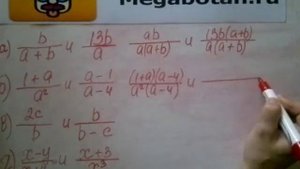 Megabotan.ru
а) b/(a+b) и 13b/a ab/(a(a+b)) и 13b(a+b)/(a(a+b))
б) (1+a)/a² и (a-1)/(a-4) (1+a)(a-4)/(a²(a-4)) и
в) 2c/b и b/(b-c)
x-y и (x+3)/x³